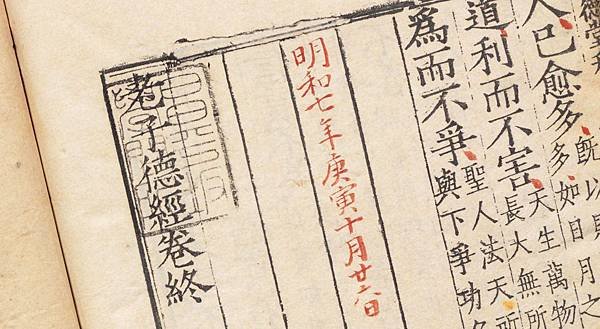 人己愈多
既以
多如日月之
道利而不害
天生萬物
長大無所
為而不爭
聖人法天所
與下爭功
明和七年庚寅十月廿六日
老子德經卷終